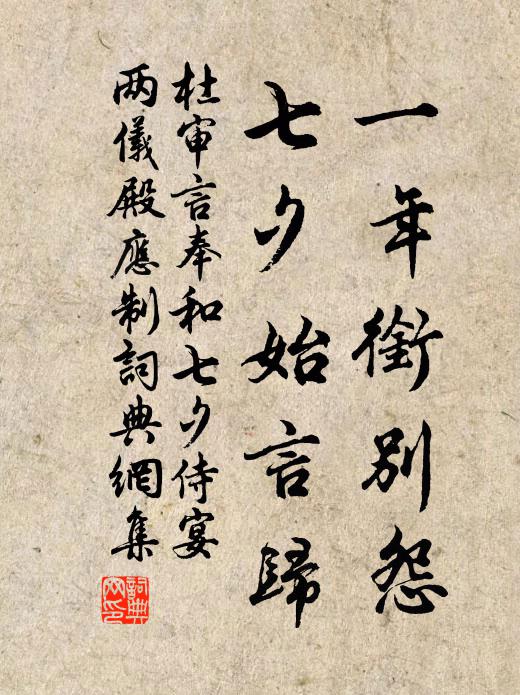 一年銜別怨
七夕始言歸
杜审言奉和七夕侍宴
两儀殿應制詞典網集
詞典
网印